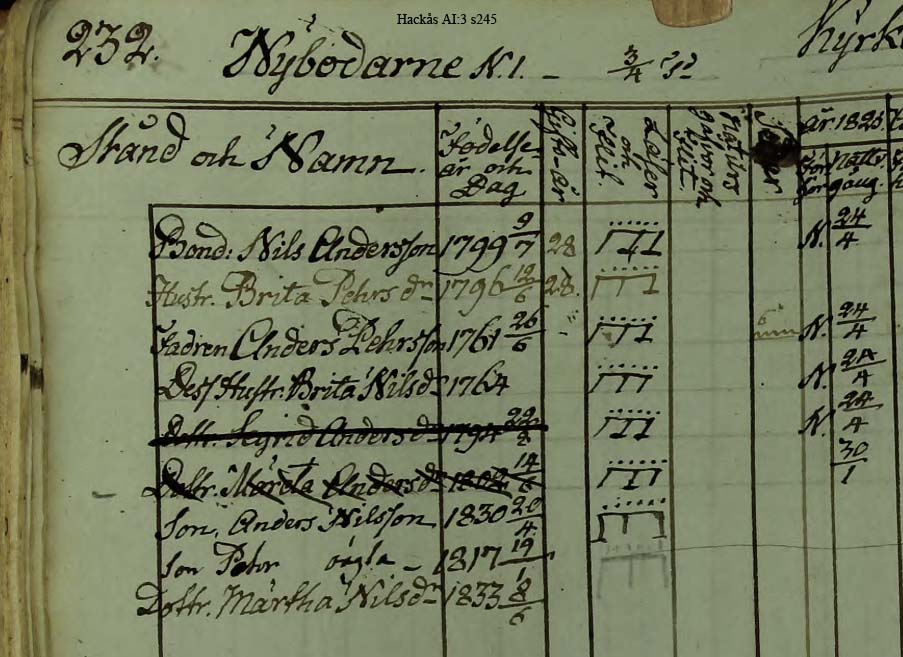 Hackås AI:3 s245
232. Nÿbodarne N.1. – 3/4 Kÿrk
Stånd och Namn. Födelse- år och Dag Gift-år år 1825.
Bond: Nils Andersson 1799 9/7 28 N. 24/4
Hustr. Brita Pehrs dr 1796 12/6 28.
Fadren Anders Pehrsson 1761 26/6 N. 24/4
Dess Hustr. Brita Nilsdr 1764 N. 24/4
Dottr. Sigrid Anders dr 1794 22/8 N. 24/4
Dottr. Märeta Andersdr 1804 14/6 30/1
Son. Anders Nilsson 1830 20/4
Son Pehr oägta – 1817 19/1
Dottr. Märtha Nilsdr 1833 8/6